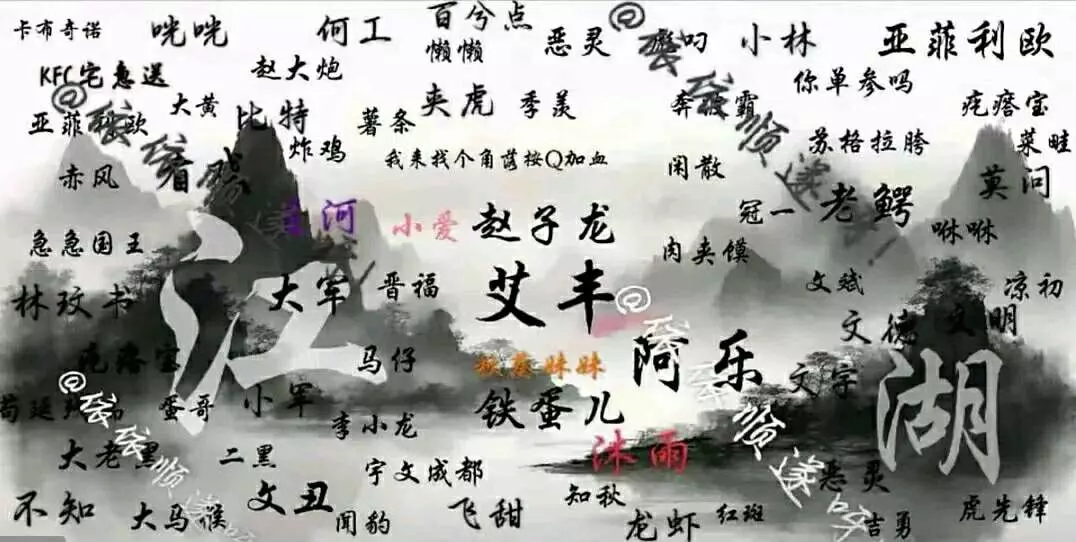 卡布奇诺
咣咣
何工
百兮点
懒懒
恶灵
小林
亚菲利欧
KFC宅急送
赵大炮
你单参吗
大黄
比特
薯条
夹虎
季美
奔波霸
疙瘩宝
亚菲利欧
炸鸡
我来找个角落按Q加血
闲散
苏格拉胯
菜畦
赤风
莫问
河
小爱
赵子龙
冠一
老鳄
咻咻
急急国王
肉夹馍
林玟书
大军
晋福
艾丰
文斌
凉初
文德
文明
江
疙瘩宝
马仔
妹妹
阿乐
文宇
湖
蛋哥
小军
李小龙
铁蛋儿
大老黑
二黑
宇文成都
沐雨
恶灵
不知
大马猴
文丑
闻豹
飞甜
知秋
龙虾
红斑
吉勇
虎先锋